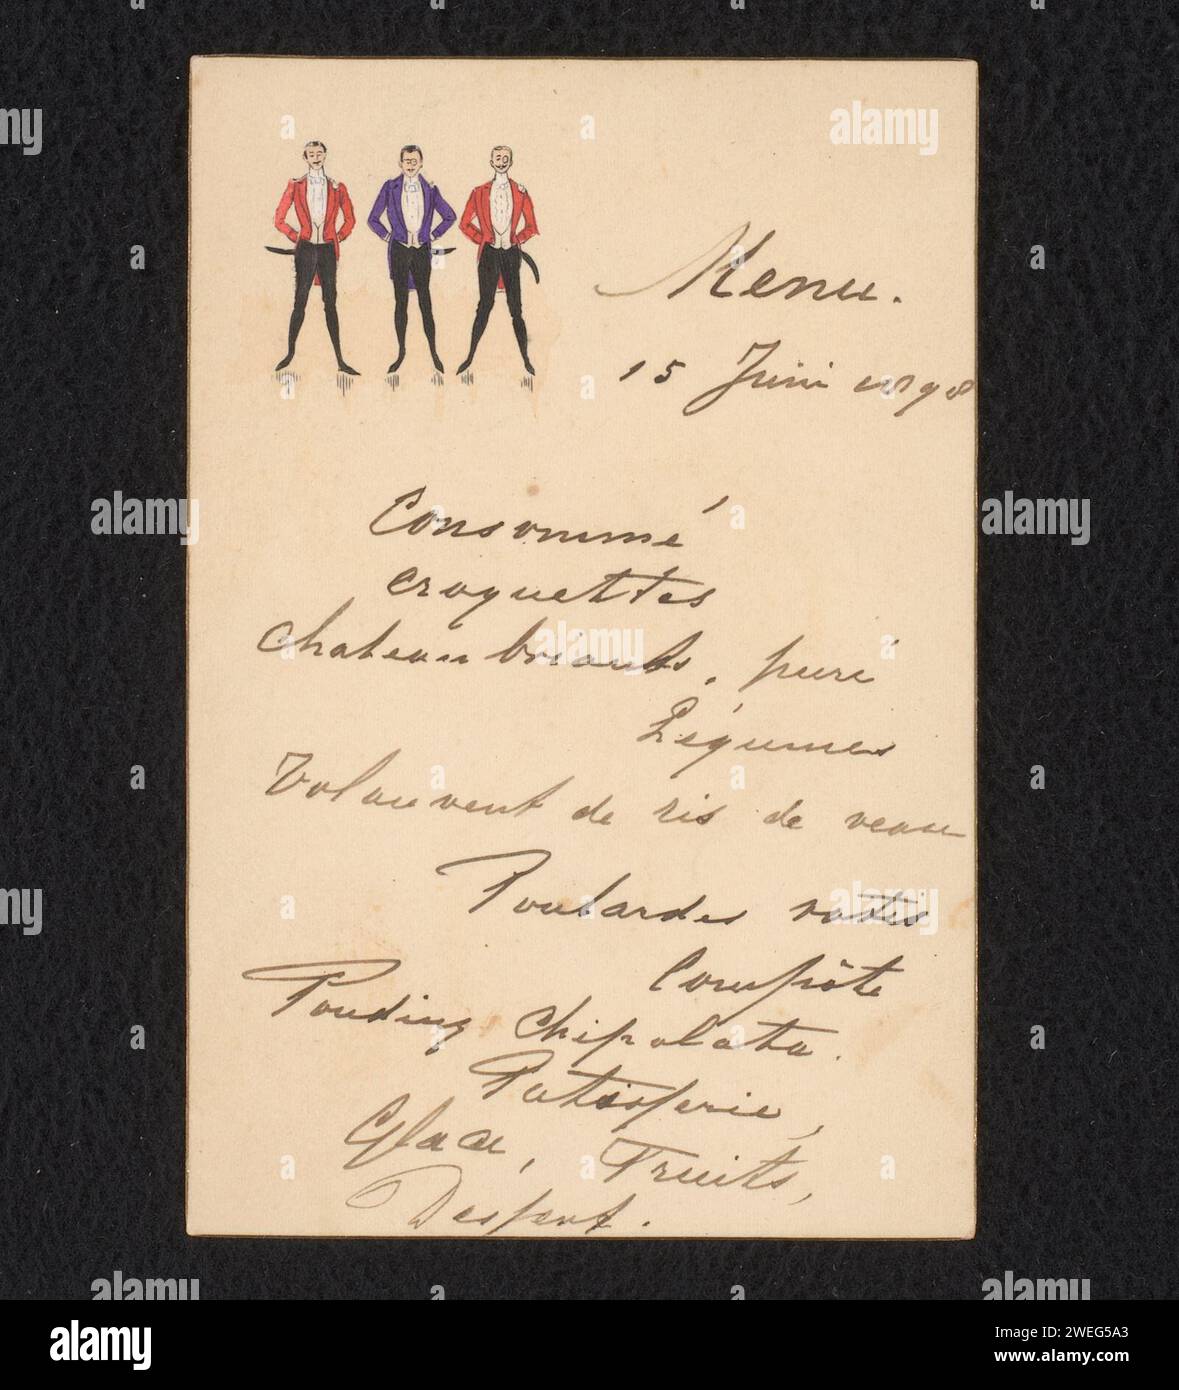 Menu.
15 Juni 1898
Consommé
croquettes
chateaubriants, puré
Légumes
Volauvent de ris de veau
Poulardes roties
Compôte
Pouding chipolata.
Patisserie,
Glace, Fruits,
Dessert.
alamy
Image ID: 2WEG5A3
www.alamy.com